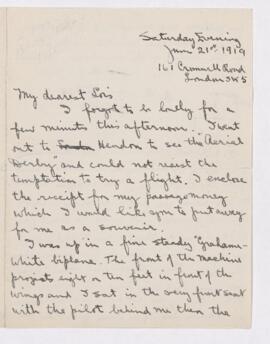 Saturday Evening
June 21st 1919
161 Cromwell Road
London SW5
My dearest Lois
I forgot to be lonely for a
few minutes this afternoon. I went
out to Hendon to see the "Aerial
Derby" and could not resist the
temptation to try a flight. I enclose
the receipt for my passage money
which I would like you to put away
for me as a souvenir.
I was up in a fine steady "Grahame-
White biplane. The front of the machine
projects eight or ten feet in front of the
wings and I sat in the very front seat
with the pilot behind me then the